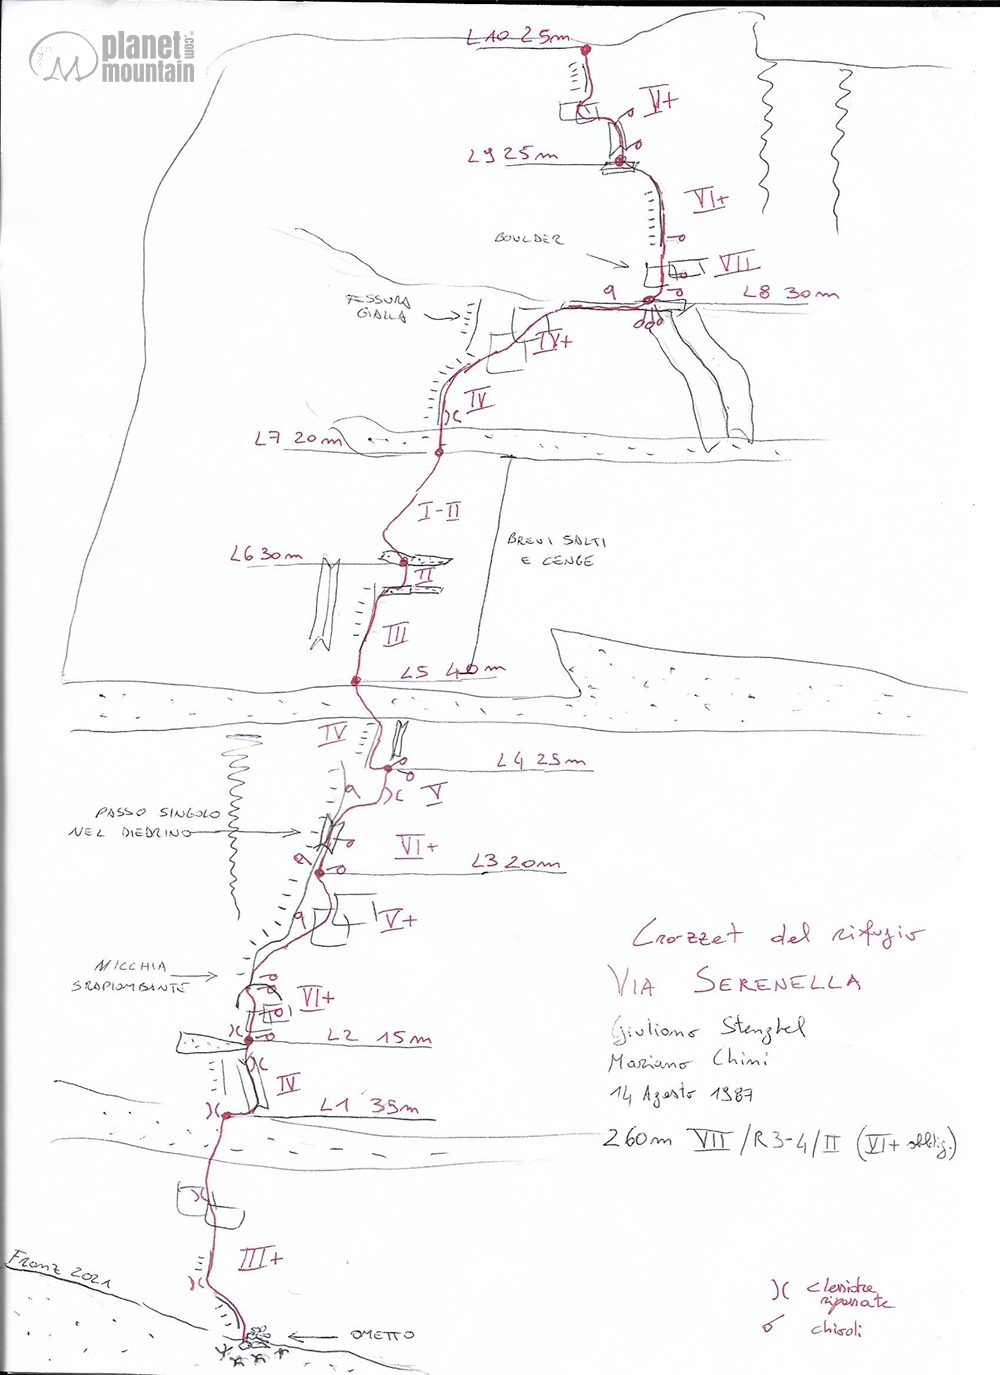 planet
mountain
.com
L10 25m
V+
L9 25m
VI+
BOULDER
VII
a
L8 30m
FESSURA
GIALLA
IV+
IV
L7 20m
I-II
BREVI SALTI
E CENGE
L6 30m
II
III
L5 40m
IV
L4 25m
a
V
PASSO SINGOLO
NEL DIEDRINO
VI+
a
L3 20m
a
V+
Crozzet del rifugio
NICCHIA
STRAPIOMBANTE
VIA SERENELLA
VI+
Giuliano Stenghel
L2 15m
Mariano Chini
IV
14 Agosto 1987
L1 35m
260m VII/R3-4/II (VI+ obblig.)
III+
Franz 2021
clessidre
riparate
OMETTO
chiodi